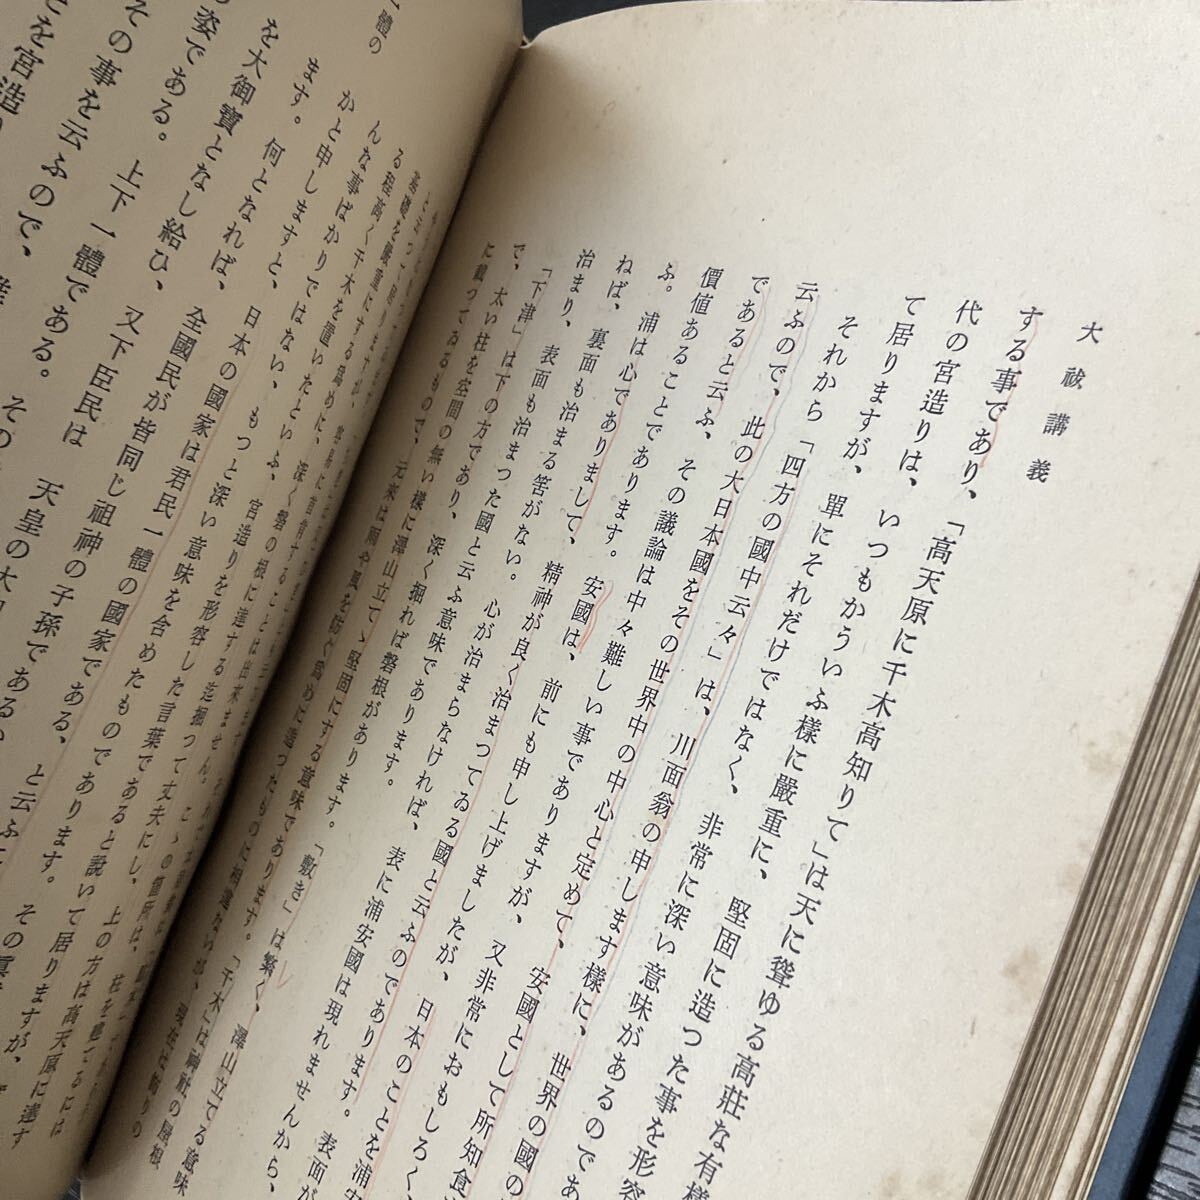 大祓講義
する事であり、「高天原に千木高知りて」は天に聳ゆる高莊な有樣
代の宮造りは、いつもかういふ樣に嚴重に、堅固に造つた事を形容
て居りますが、單にそれだけではなく、非常に深い意味があるのであ
それから「四方の國中云々」は、川面翁の申します樣に、世界の國の
云ふので、此の大日本國をその世界中の中心と定めて、安國として所知食
であると云ふ、その議論は中々難しい事でありますが、又非常におもしろく、
價値あることであります。安國は、前にも申し上げましたが、日本のことを浦安
ふ。浦は心でありまして、精神が良く治まつてゐる國と云ふのであります。表面が
ねば、裏面も治まる筈がない。心が治まらなければ、表に浦安國は現れませんから、
治まり、表面も治まつた國と云ふ意味であります。
「下津」は下の方であり、深く掘れば磐根があります。「敷き」は繁く、澤山立てる意味
で、太い柱を空間の無い樣に澤山立てゝ堅固にする意味であります。「千木」は神社の屋根
に載つてゐるもので、元來は雨や風を防ぐ爲めに造つたものに相違ないが、現在は飾りの
一體の
基礎を嚴重にしますが、
る程高く千木を置いたといふ、宮造りを形容した言葉であると說いて居りますが、
んな事ばかりではない、もつと深い意味を含めたものであります。その眞
かと申しますと、日本の國家は君民一體の國家である、と云ふ
ます。何となれば、全國民が皆同じ祖神の子孫である、
を大御寶となし給ひ、又下臣民は 天皇の大
姿である。上下一體である。その
その事を云ふので、
を宮造り